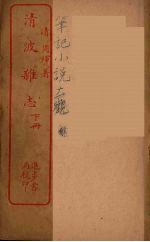 清 周煇著
清波雜志 下冊
進步書局校印
筆記小說大觀